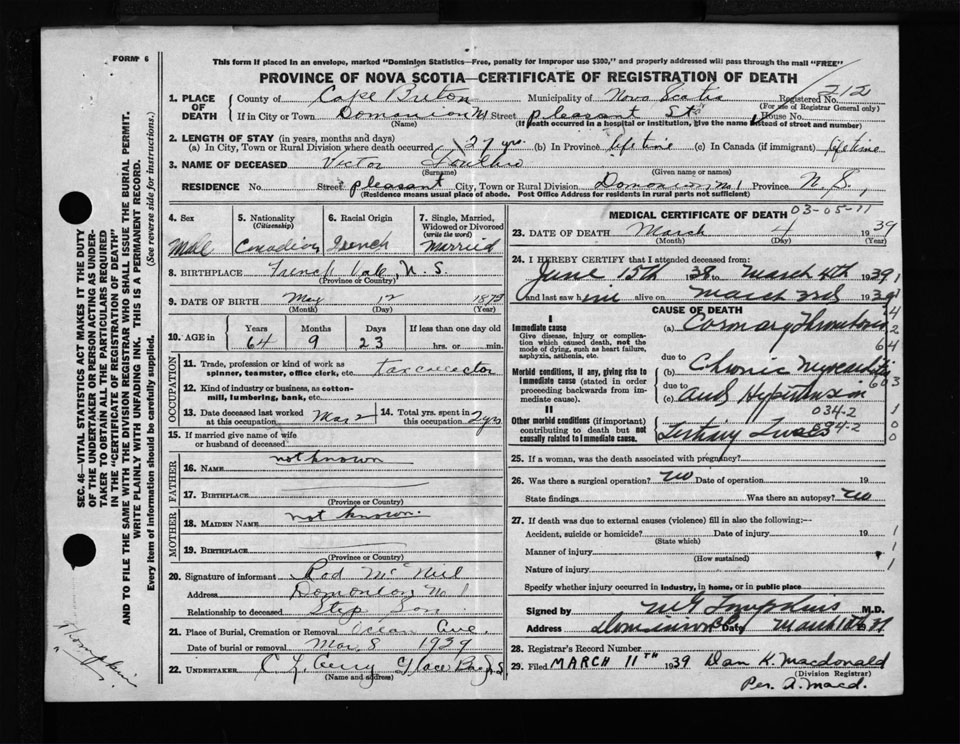 FORM 6
This form if placed in an envelope, marked "Dominion Statistics—Free, penalty for improper use $300," and properly addressed will pass through the mail "FREE"
PROVINCE OF NOVA SCOTIA—CERTIFICATE OF REGISTRATION OF DEATH
212
1. PLACE OF DEATH County of Cape Breton Municipality of Nova Scotia Registered No.
(For use of Registrar General only)
If in City or Town Domonion Street pleasant St House No.
(Name) (If death occurred in a hospital or institution, give the name instead of street and number)
2. LENGTH OF STAY (in years, months and days)
(a) In City, Town or Rural Division where death occurred 27 yrs. (b) In Province life time (c) In Canada (if immigrant) life time
3. NAME OF DECEASED Victor
(Surname) (Given or names)
RESIDENCE No. Street pleasant City, Town or Rural Division Domonion, No. 1 Province N.S.
(Residence means usual place of abode. Post Office Address for residents in rural parts not sufficient)
4. Sex Male
5. Nationality (Citizenship) Canadian
6. Racial Origin French
7. Single, Married, Widowed or Divorced (write the word) Married
8. BIRTHPLACE French Vale, N.S.
(Province or Country)
9. DATE OF BIRTH May 12
(Month) (Day) (Year)
10. AGE in Years 64 Months 9 Days 23 If less than one day old hrs. or min.
OCCUPATION
11. Trade, profession or kind of work as spinner, teamster, office clerk, etc. tax collector
12. Kind of industry or business, as cotton-mill, lumbering, bank, etc.
13. Date deceased last worked at this occupation Mar 2
14. Total yrs. spent in this occupation 2 yrs
15. If married give name of wife or husband of deceased
FATHER
16. NAME not known
17. BIRTHPLACE
(Province or Country)
MOTHER
18. MAIDEN NAME not known.
19. BIRTHPLACE
(Province or Country)
20. Signature of informant Rod McNeil
Address Domonion No 1
Relationship to deceased Step Son
21. Place of Burial, Cremation or Removal Ocean Ave,
Date of burial or removal Mar, 8 1939
22. UNDERTAKER Glace Bay N.S
(Name and address)
MEDICAL CERTIFICATE OF DEATH
03-05-11
23. DATE OF DEATH March 4 1939
(Month) (Day) (Year)
24. I HEREBY CERTIFY that I attended deceased from:
June 15th 1938 to March 4th 1939
and last saw him alive on March 3rd 1939
CAUSE OF DEATH
I
Immediate cause
Give disease, injury or complication which caused death, not the mode of dying, such as heart failure, asphyxia, asthenia, etc.
(a) Coronary Thrombosis
due to
Morbid conditions, if any, giving rise to immediate cause (stated in order proceeding backwards from immediate cause).
(b) Chronic Myocarditis
due to
(c) and Hypertension
II
034-2
Other morbid conditions (if important) contributing to death but not causally related to immediate cause.
Tertiary Lues 034-2
25. If a woman, was the death associated with pregnancy?
26. Was there a surgical operation? no Date of operation 19
State findings Was there an autopsy? no
27. If death was due to external causes (violence) fill in also the following:—
Accident, suicide or homicide? Date of injury 19
(State which)
Manner of injury
(How sustained)
Nature of injury
Specify whether injury occurred in industry, in home, or in public place
Signed by M.G. Tompkins M.D.
Address Dominion Date March
28. Registrar's Record Number
29. Filed MARCH 11TH 1939 Dan K. Macdonald
(Division Registrar)
Per. A. Macd.
SEC. 46—VITAL STATISTICS ACT MAKES IT THE DUTY
OF THE UNDERTAKER OR PERSON ACTING AS UNDER-
TAKER TO OBTAIN ALL THE PARTICULARS REQUIRED
IN THE "CERTIFICATE OF REGISTRATION OF DEATH"
AND TO FILE THE SAME WITH THE DIVISION REGISTRAR WHO SHALL ISSUE THE BURIAL PERMIT.
WRITE PLAINLY WITH UNFADING INK. THIS IS A PERMANENT RECORD.
Every item of information should be carefully supplied. (See reverse side for instructions.)